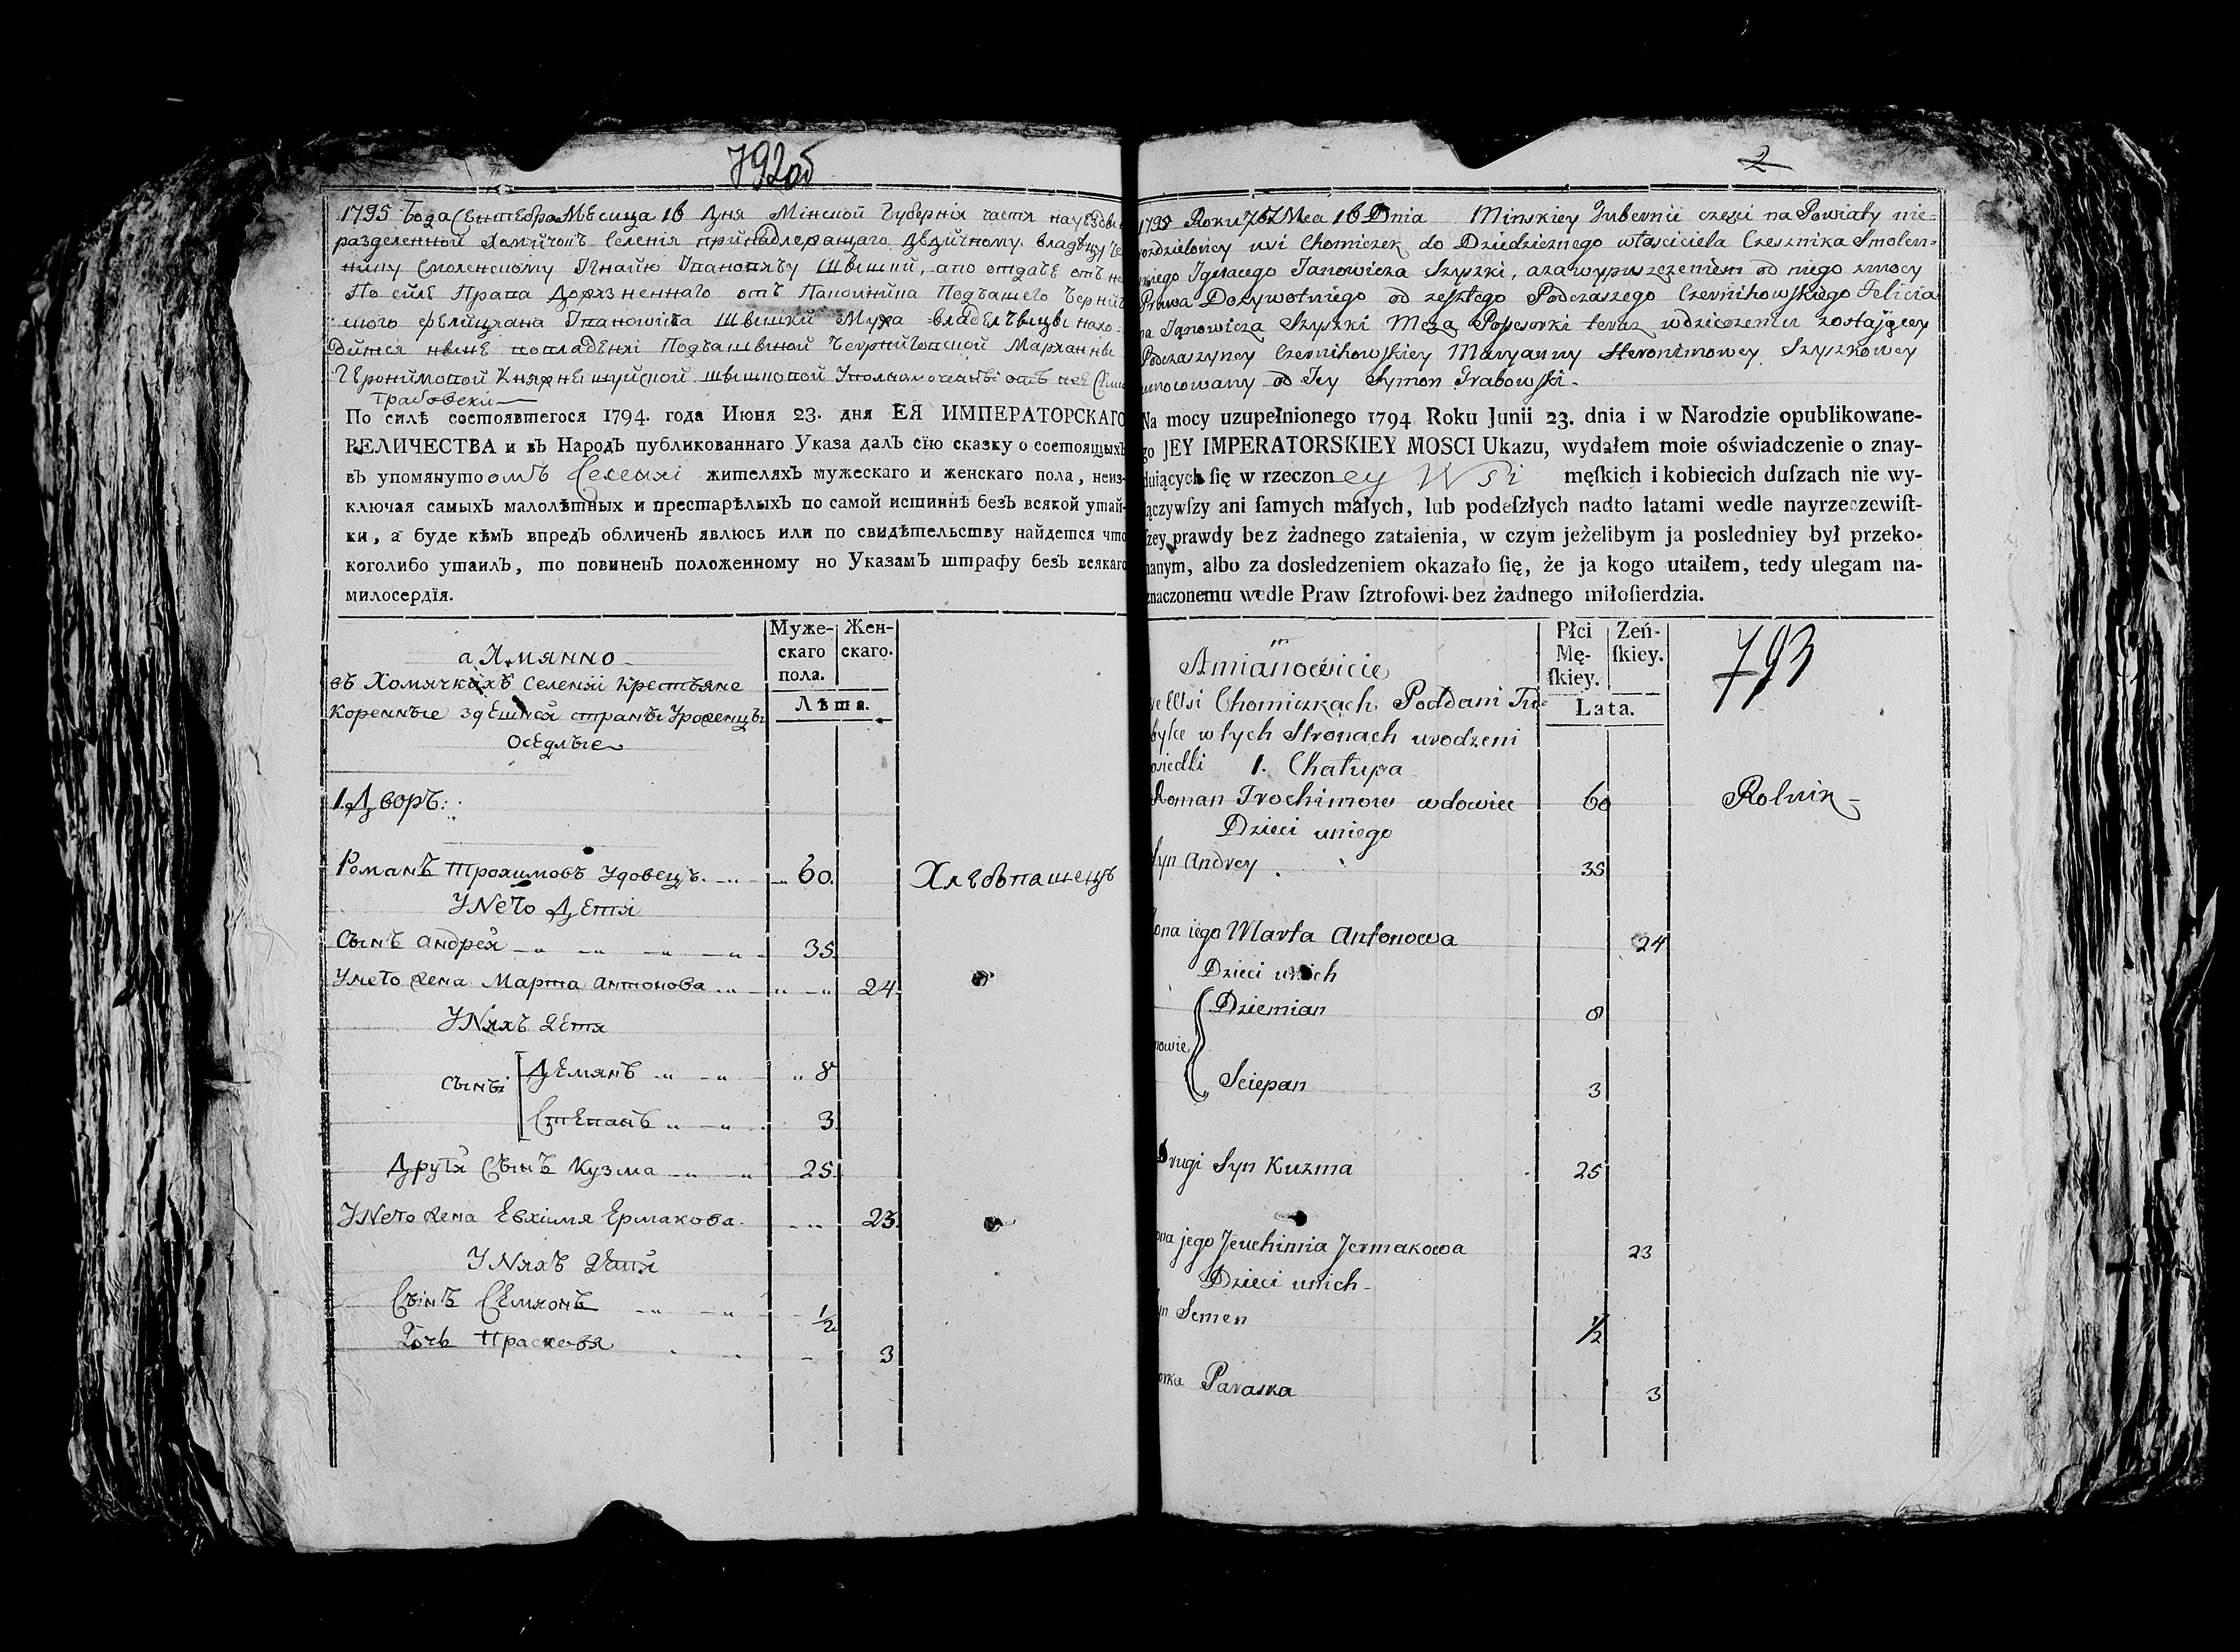 792об
1795 Года Сентебра Мѣсица 16 Дня Мінской Губерніи части на уѣзды
разделенной Хомичокъ Селенія принадлежащаго Дѣдичному владѣцу Че
шнику Смоленскому Игнацію Ивановичу Шышки, а по отдаче отъ не
По силе Права Дожизненнаго отъ Покойника Подчашего Черниг
ского Фелицыана Ивановича Шышки Мужа
дится ныне во владении Подчашыной Черниговской Марианны
Геронимовой Княжны Шуйской Шышковой Уполномоченный отъ нее Семо
Грабовски
По силѣ состоявшегося 1794. года Июня 23. дня ЕЯ ИМПЕРАТОРСКАГО
ВЕЛИЧЕСТВА и въ Народъ публикованнаго Указа далъ сїю сказку о состоящихъ
въ упомянутомъ Селеніи жителяхъ мужескаго и женскаго пола, неиз-
ключая самыхъ малолѣтныхъ и престарѣлыхъ по самой истиннѣ безъ всякой утай-
ки, а буде кѣмъ впредъ обличенъ явлюсь или по свидѣтельству найдется что
коголибо утаилъ, то повиненъ положенному по Указамъ штрафу безъ всякаго
милосердїя.
Муже-
скаго
пола.
Жен-
скаго.
Лѣта.
а Имянно
въ Хомичкахъ Селеніи Крестьяне
Коренные здешней страны Уроженцы
Оседлые
1. Дворъ:
Романъ Трохимовъ Удовецъ. 60. Хлебопашецъ
У Него Дети
Сынъ Андрей 35
У него жена Марта Антонова 24
У Нихъ дети
Сыны
Демянъ 8
Степанъ 3
Другй Сынъ Кузма 25
У Него жена Евхимя Ермакова 23
У Нихъ дети
Сынъ Семионъ 1/2
Дочь Прасковя 3
2
1795 Roku 7br Mca 16 Dnia Minskiey Gubernii części na Powiaty nie-
rozdzieloney wsi Chomiczek do Dziedzicznego właściciela Czesznika Smoleń-
skiego Ignacego Janowicza Szyszki, a za wypuszczeniem od niego z mocy
Prawa Dożywotniego od zeszłego Podczaszego Czernihowskiego Felicia
na Janowicza Szyszki Męża Possesorki teraz w dzierżeniu zostającey
Podczaszyney Czernihowskiey Maryanny Heronimowey Szyszkowey
umocowany od Jey Symon Grabowski.
Na mocy uzupełnionego 1794 Roku Junii 23. dnia i w Narodzie opublikowane-
go JEY IMPERATORSKIEY MOSCI Ukazu, wydałem moie oświadczenie o znay-
duiących ſię w rzeczoney Wsi męſkich i kobiecich duſzach nie wy-
łączywſzy ani ſamych małych, lub podeſzłych nadto latami wedle nayrzeczewiſt-
ſzey prawdy bez żadnego zataienia, w czym jeżelibym ja posledniey był przeko-
nanym, albo za dosledzeniem okazało ſię, że ja kogo utaiłem, tedy ulegam na-
znaczonemu wedle Praw ſztrofowi bez żadnego miłoſierdzia.
Płci
Mę-
ſkiey.
Zeń-
ſkiey.
Lata.
793
Amianowicie
we Wsi Chomiczkach Poddani Tu-
bylce w tych Stronach urodzeni
osiedli 1. Chałupa
Roman Trochimow wdowiec 60 Rolnik
Dzieci u niego
Syn Andrey 35
Żona iego Marta Antonowa 24
Dzieci u nich
Dziemian 8
nowie
Sciepan 3
Drugi Syn Kuzma 25
ona jego Jeuchimia Jermakowa 23
Dzieci u nich
yn Semen 1/2
orka Paraska 3